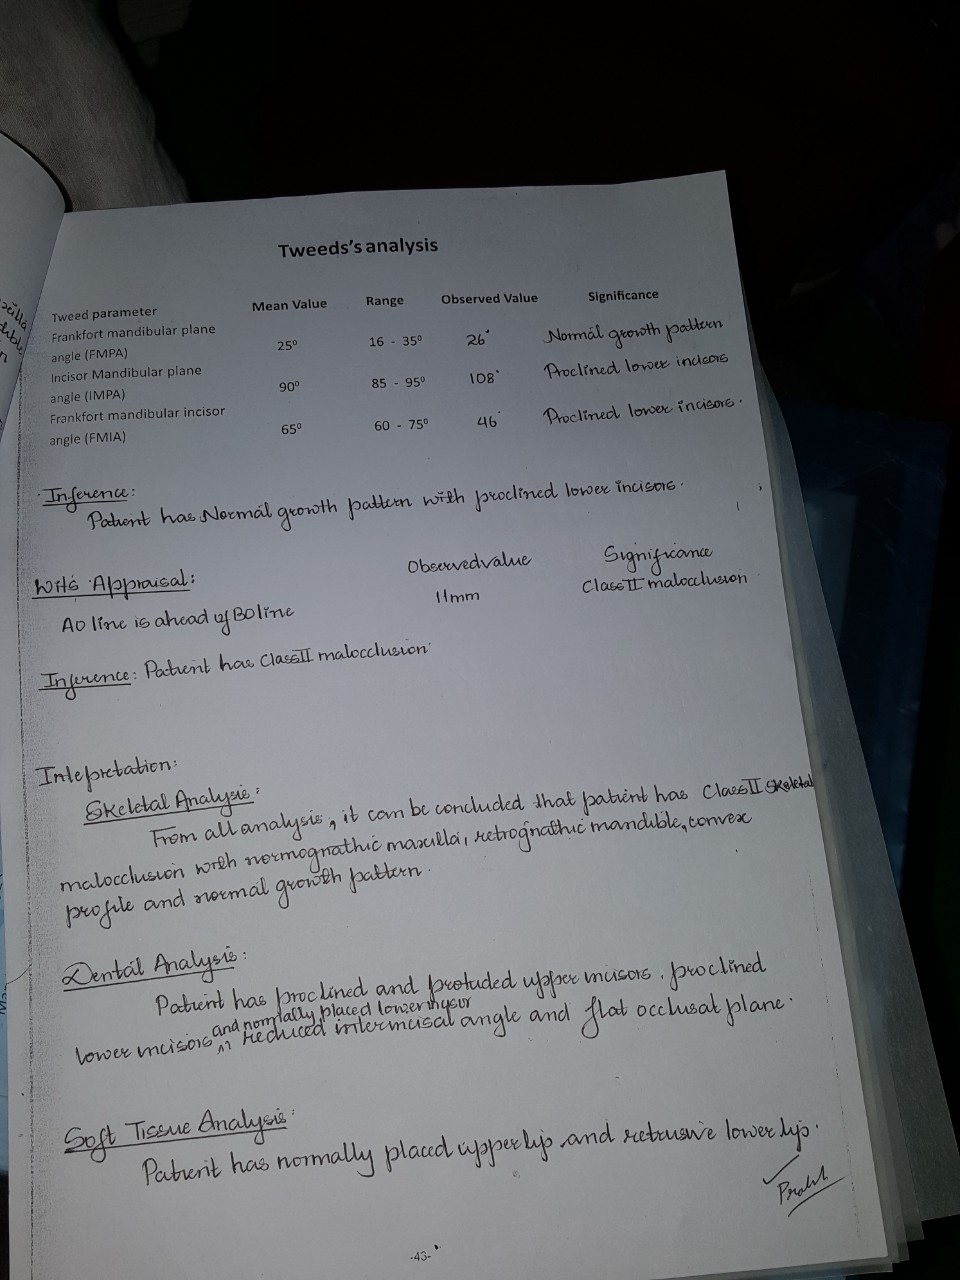 Tweeds's analysis
Tweed parameter Mean Value Range Observed Value Significance
Frankfort mandibular plane
angle (FMPA) 25⁰ 16 - 35⁰ 26° Normal growth pattern
Incisor Mandibular plane
angle (IMPA) 90⁰ 85 - 95⁰ 108° Proclined lower incisors
Frankfort mandibular incisor
angle (FMIA) 65⁰ 60 - 75⁰ 46° Proclined lower incisors.
Inference:
Patient has Normal growth pattern with proclined lower incisors.
Wits Appraisal: Observed value Significance
AO line is ahead of BO line 11mm Class II malocclusion
Inference: Patient has Class II malocclusion
Intepretation:
Skeletal Analysis:
From all analysis, it can be concluded that patient has Class II skeletal
malocclusion with normognathic maxilla, retrognathic mandible, convex
profile and normal growth pattern.
Dental Analysis:
Patient has proclined and protuded upper incisors, proclined
and normally placed lower
lower incisors reduced interincisal angle and flat occlusal plane.
Soft Tissue Analysis:
Patient has normally placed upper lip and retrusive lower lip.
-43-